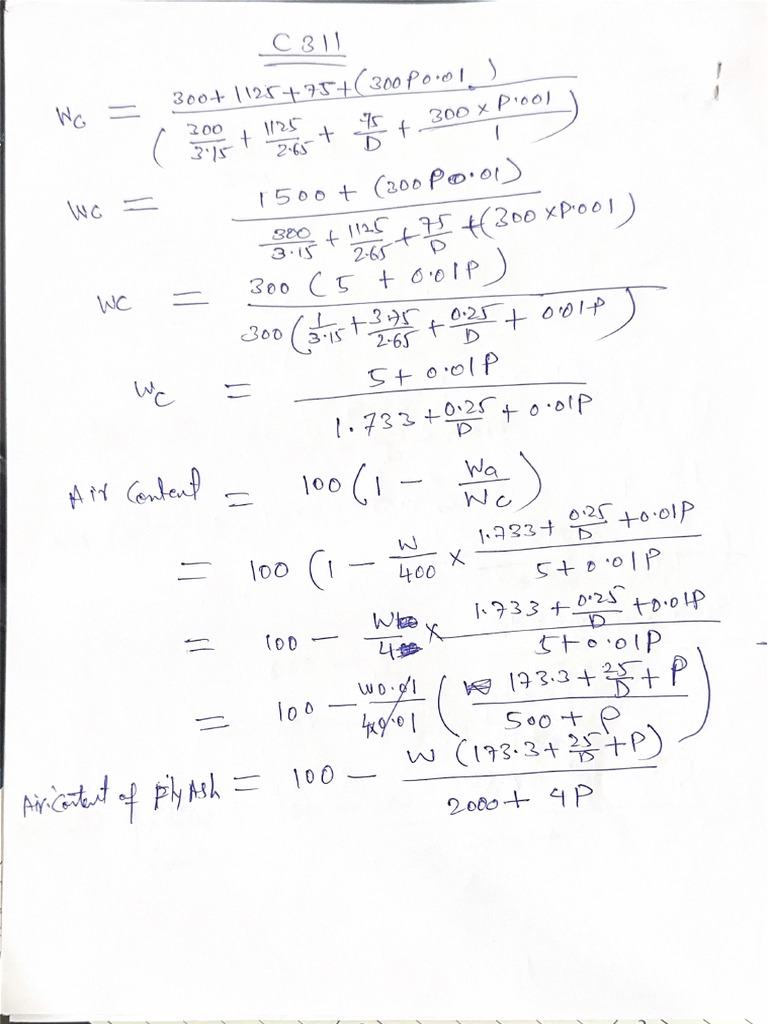 C311
Wc = 300 + 1125 + 75 + (300 P 0.01) / (300/3.15 + 1125/2.65 + 75/D + 300 x P.001/1)
Wc = 1500 + (300 P 0.01) / 300/3.15 + 1125/2.65 + 75/D + (300 x P.001)
Wc = 300 (5 + 0.01P) / 300 (1/3.15 + 3.75/2.65 + 0.25/D + 0.01P)
Wc = 5 + 0.01P / 1.733 + 0.25/D + 0.01P
Air Content = 100 (1 - Wa/Wc)
= 100 (1 - W/400 x 1.733 + 0.25/D + 0.01P / 5 + 0.01P
= 100 - W/4 x 1.733 + 0.25/D + 0.01P / 5 + 0.01P
= 100 - W0.01/4x0.01 (173.3 + 25/D + P / 500 + P)
Air Content of Fly Ash = 100 - W (173.3 + 25/D + P) / 2000 + 4P